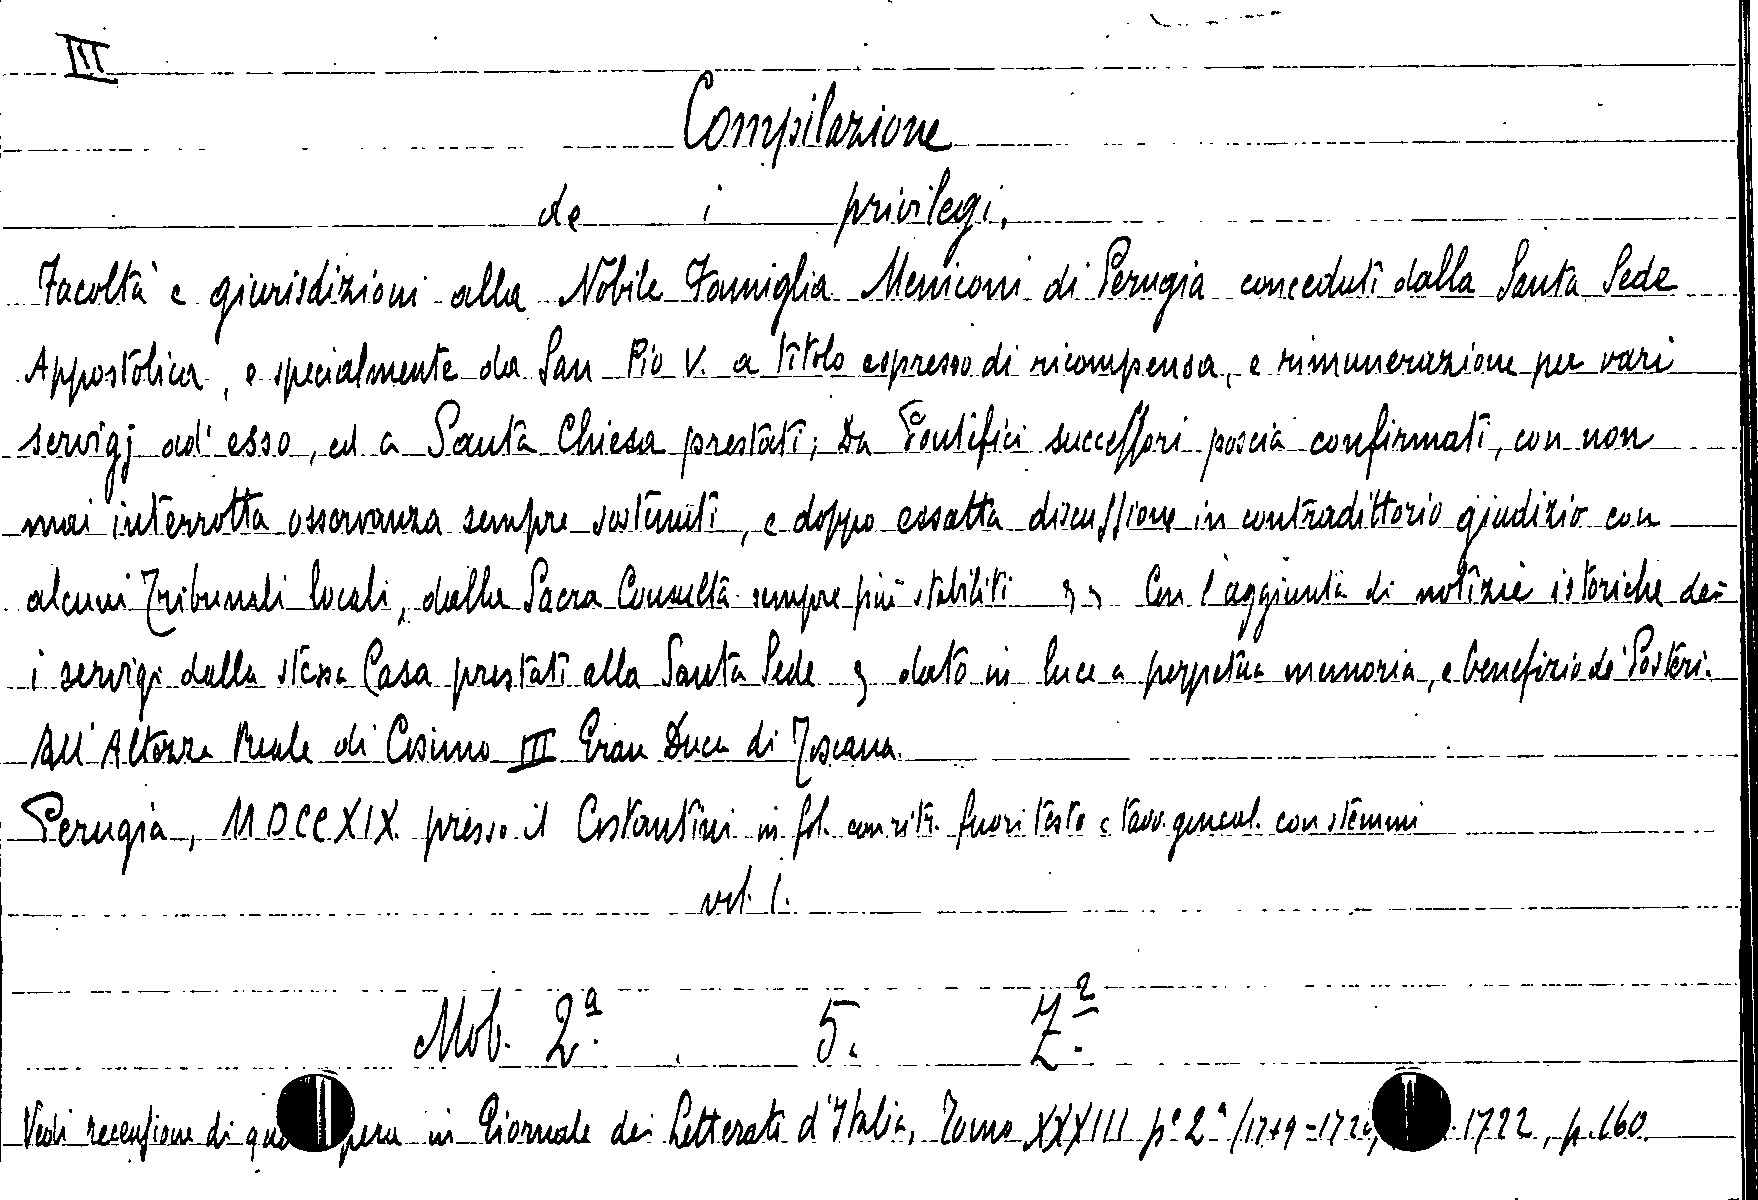 III
Compilazione
de i privilegi,
Facoltà e giurisdizioni alla Nobile Famiglia Meniconi di Perugia conceduti dalla Santa Sede
Appostolica, e specialmente da San Pio V. a titolo espresso di ricompensa, e rimunerazione per vari
servigj ad' esso, ed a Santa Chiesa prestati; Da Pontifici successori poscia confirmati, con non
mai interrotta osservanza sempre sostenuti, e doppo essatta discussione in contradittorio giudizio con
alcuni Tribunali locali, dalla Sacra Consulta sempre più stabiliti Con l'aggiunta di notizie istoriche de=
i servigi dalla stessa Casa prestati alla Santa Sede dato in luce a perpetua memoria, e benefizio de' Posteri.
All' Altezza Reale di Cosimo III Gran Duca di Toscana.
Perugia, MDCCXIX. presso il Costantini in fol. con ritr. fuori testo e tavv. geneal. con stemmi
vol. 1.
Mob. 2ª. 5. Z.²
Vedi recensione di que pera in Giornale dei Letterati d'Italia, Tomo XXXIII pª 2ª (1719=1720, 1722, p. 160.